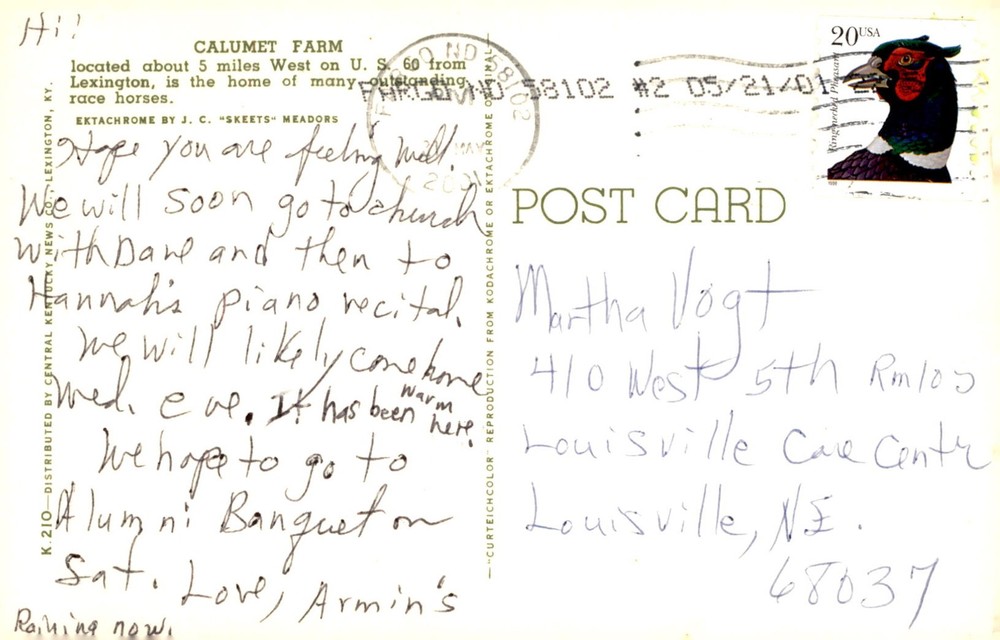 Hi!
CALUMET FARM
located about 5 miles West on U. S. 60 from
Lexington, is the home of many outstanding
race horses.
EKTACHROME BY J. C. "SKEETS" MEADORS
Hope you are feeling well.
We will soon go to church
with Dave and then to
Hannah's piano recital.
We will likely come home
Wed. eve. It has been warm
here.
We hope to go to
Alumni Banquet on
Sat. Love, Armin's
Raining now.
K. 210—DISTRIBUTED BY CENTRAL KENTUCKY NEWS CO., LEXINGTON, KY.
"CURTEICHCOLOR" REPRODUCTION FROM KODACHROME OR EKTACHROME ORIGINAL
FARGO ND 58102
MAY
2001
FARGO ND 58102 #2 05/21/01
20USA
Ring-necked Pheasant
POST CARD
Martha Vogt
410 West 5th
Louisville Care Centr
Louisville, NE.
68037